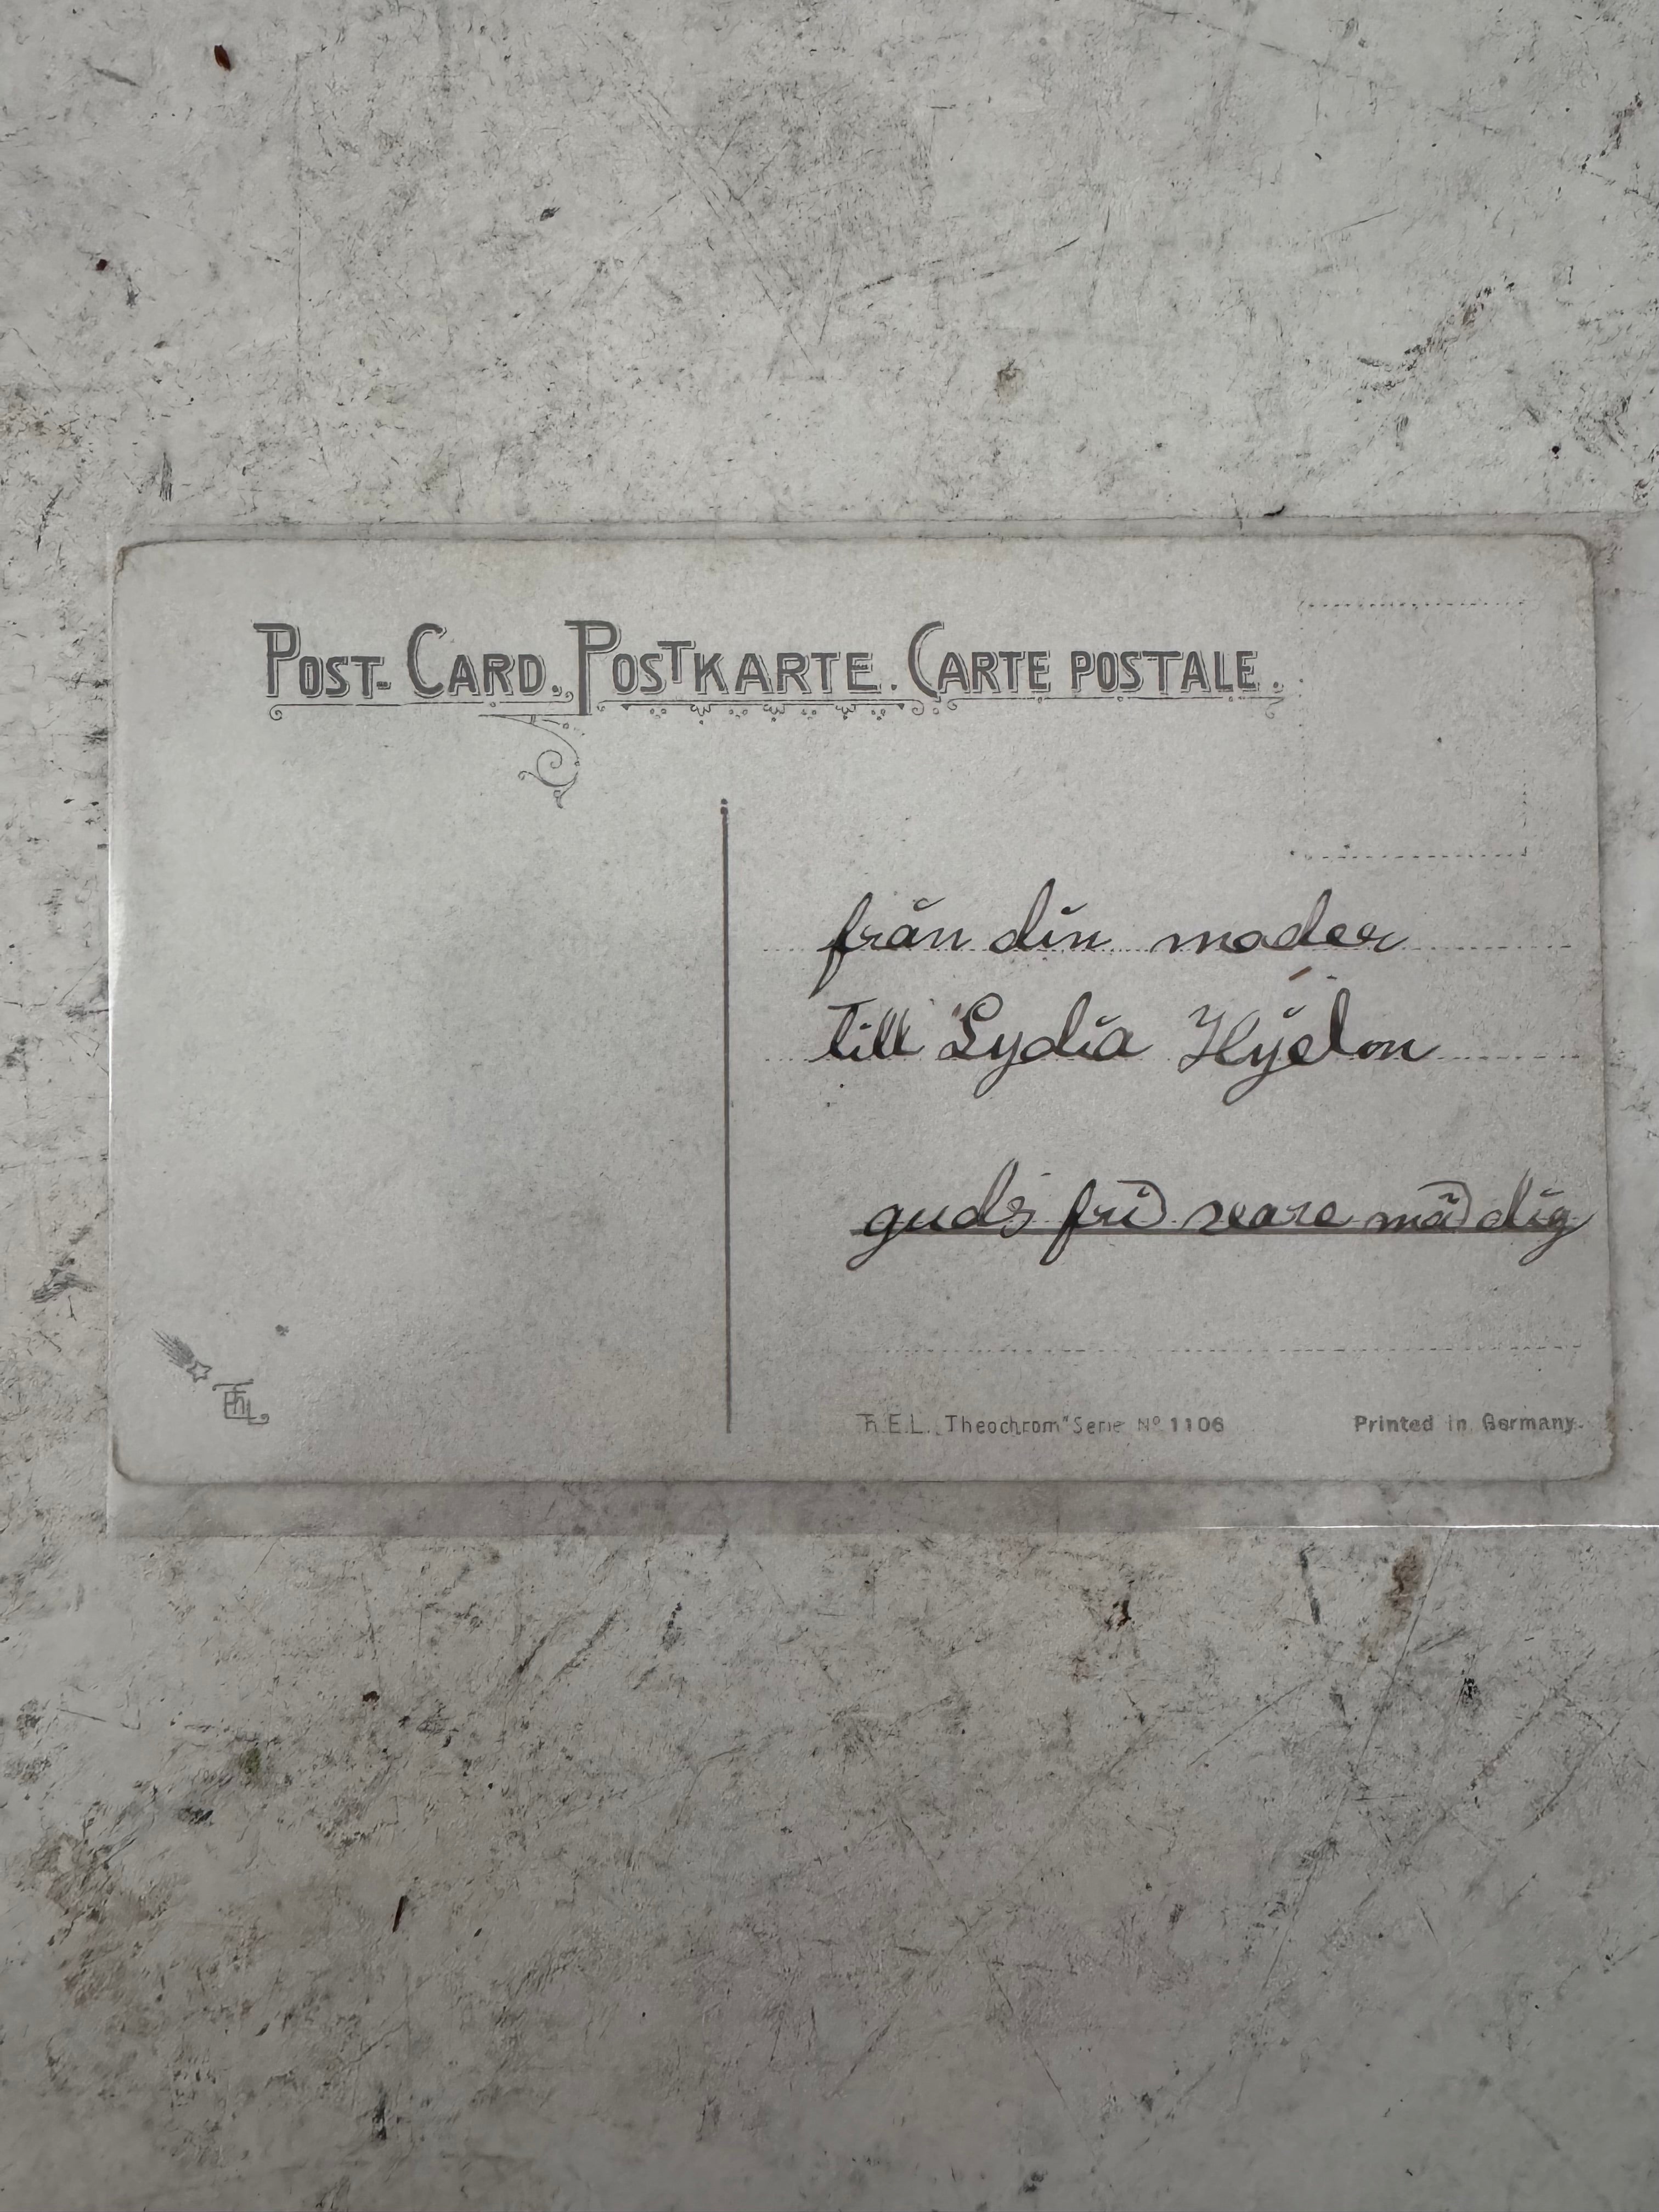 POST-CARD. POSTKARTE. CARTE POSTALE.
från din moder
till Lydia
guds frid vare mäd dig
Th.E.L. „Theochrom" Serie Nº 1106
Printed in Germany.